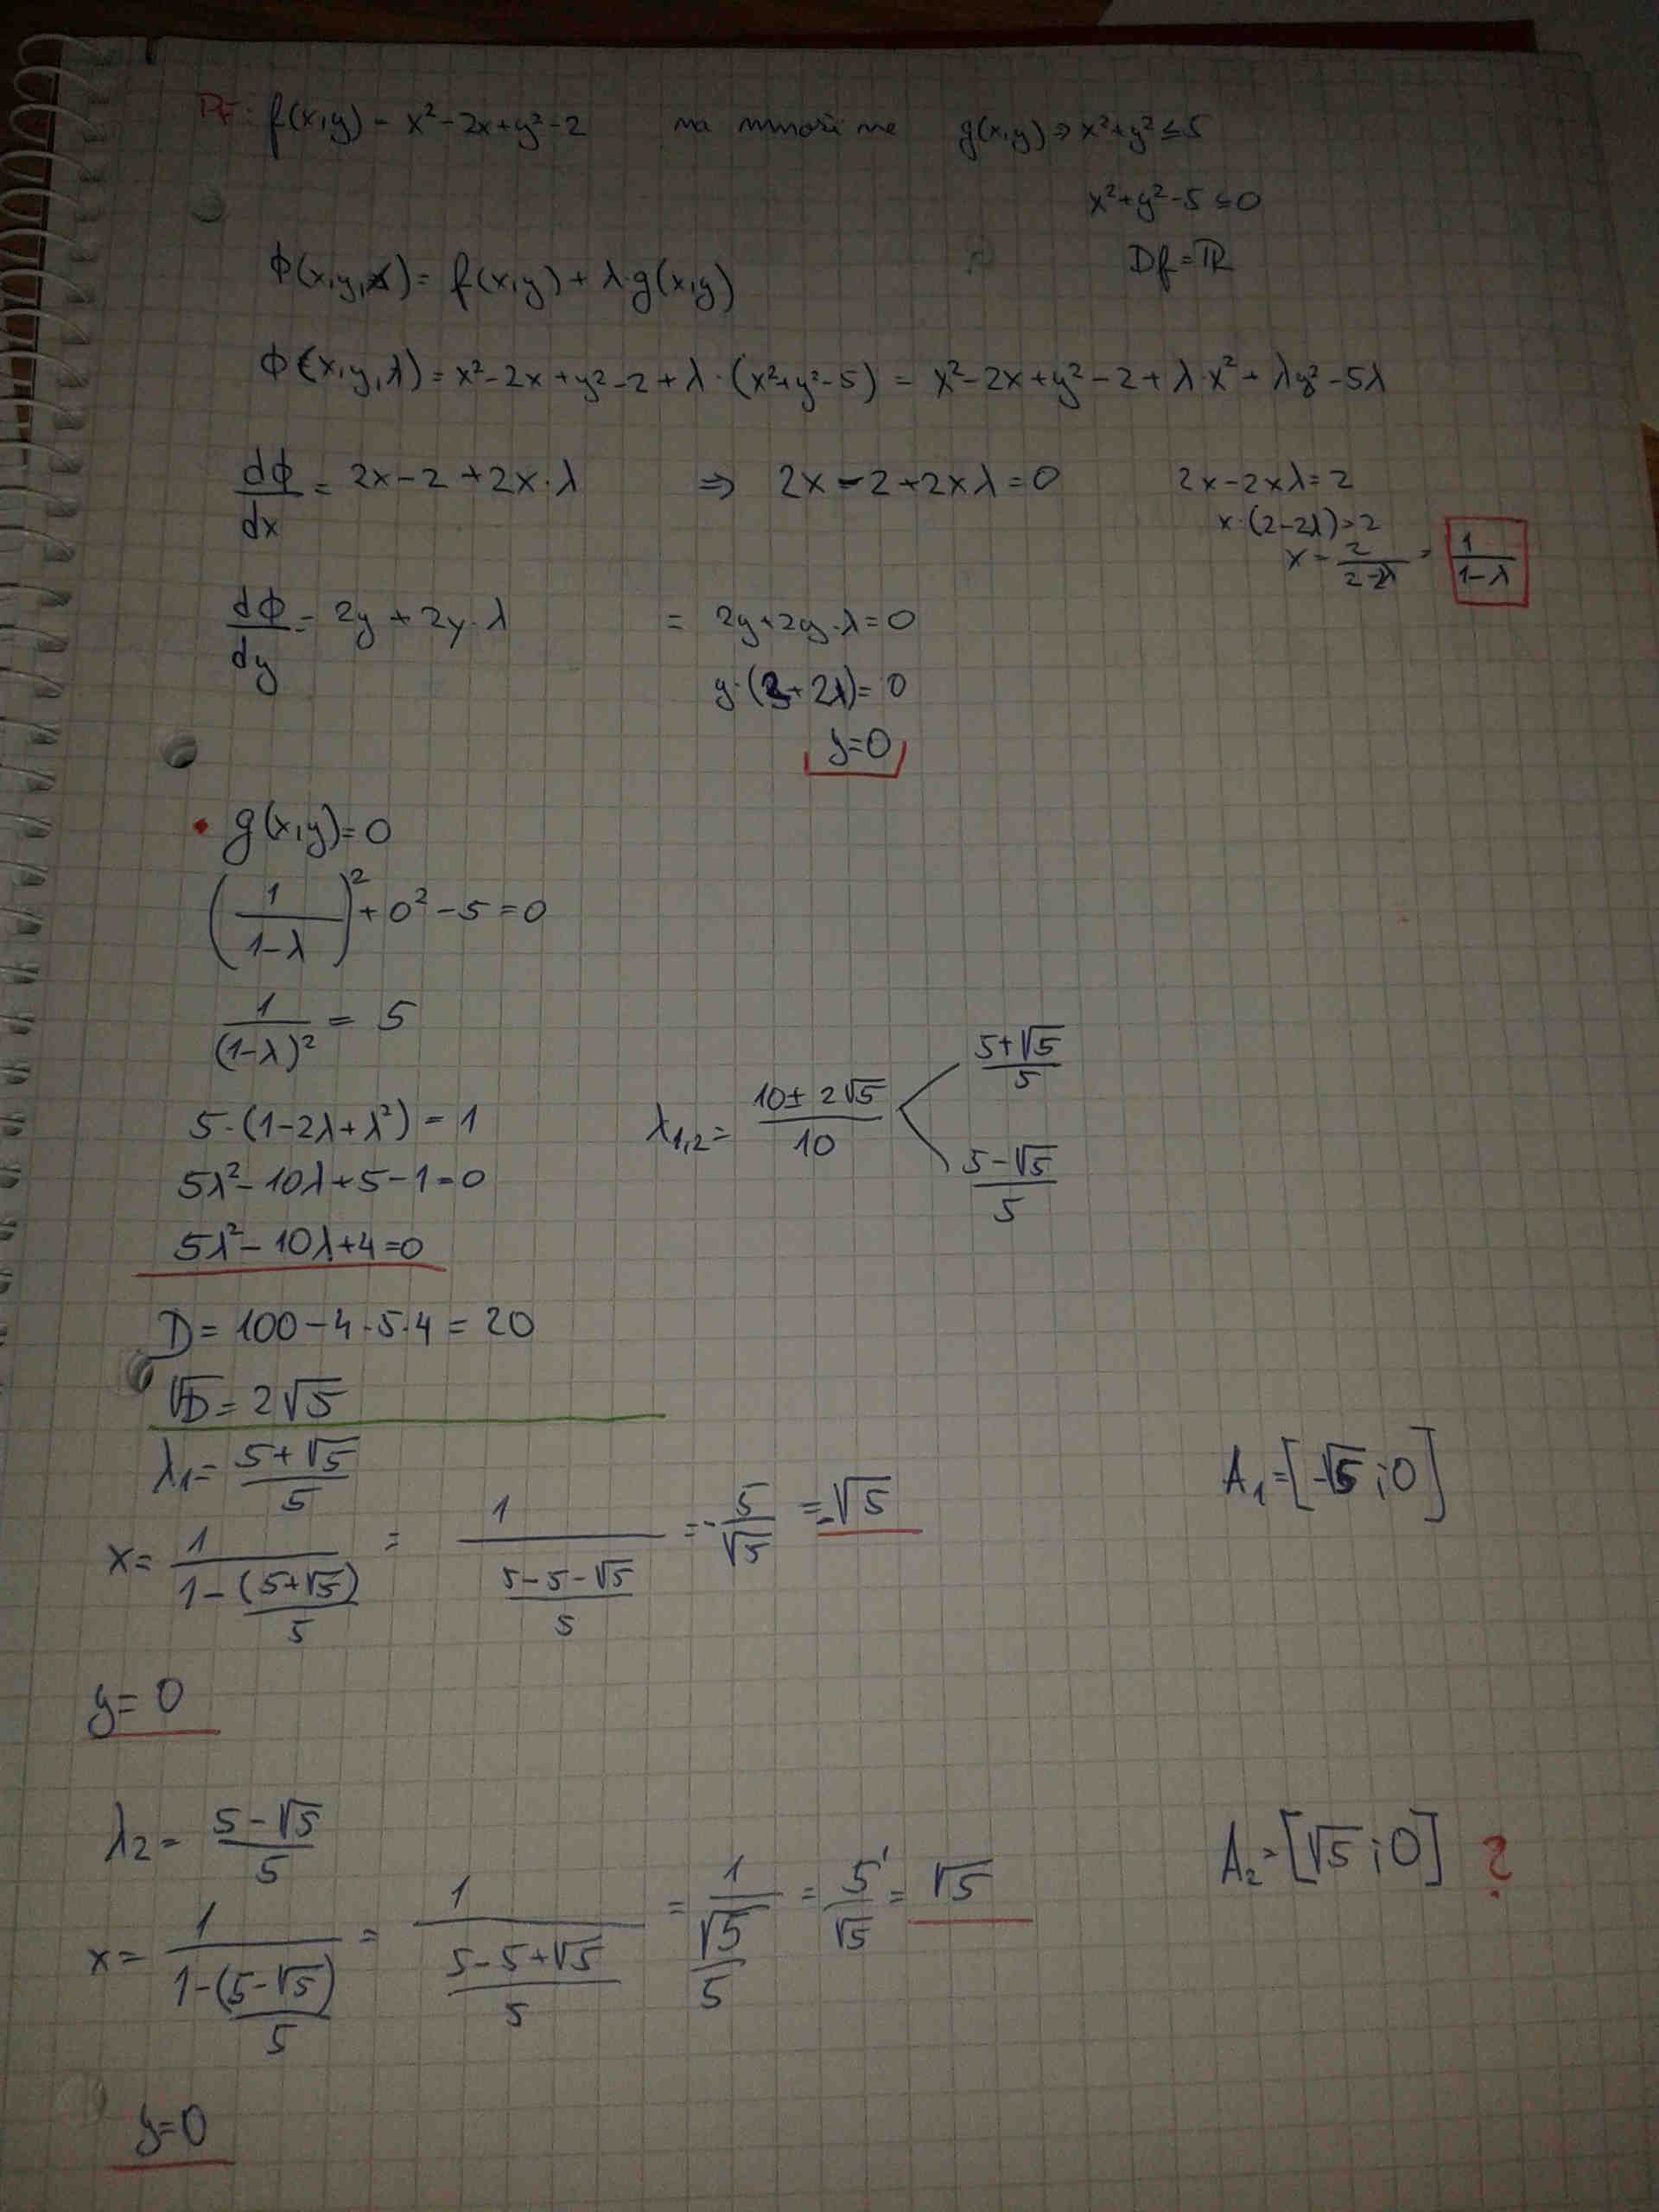 Př: f(x,y) = x²-2x+y²-2 na množině g(x,y) ⇒ x²+y² ≤ 5
x²+y²-5 ≤ 0
Df = ℝ
ϕ(x,y,λ) = f(x,y) + λ·g(x,y)
ϕ(x,y,λ) = x²-2x+y²-2+λ·(x²+y²-5) = x²-2x+y²-2+λ·x²+λy²-5λ
dϕ/dx = 2x-2+2x·λ ⇒ 2x-2+2xλ=0 2x-2xλ=2
x·(2-2λ)=2
x = 2/(2-2λ) = 1/(1-λ)
dϕ/dy = 2y+2y·λ = 2y+2y·λ=0
y·(2+2λ)=0
y=0
• g(x,y)=0
(1/(1-λ))²+0²-5=0
1/(1-λ)² = 5
5·(1-2λ+λ²) = 1
5λ²-10λ+5-1=0
5λ²-10λ+4=0
λ1,2 = (10±2√5)/10
(5+√5)/5
(5-√5)/5
D = 100-4·5·4 = 20
√D = 2√5
λ1 = (5+√5)/5
x = 1/(1-(5+√5)/5) = 1/((5-5-√5)/5) = -5/√5 = -√5 A1=[-√5;0]
y=0
λ2 = (5-√5)/5
x = 1/(1-(5-√5)/5) = 1/((5-5+√5)/5) = 1/(√5/5) = 5/√5 = √5 A2=[√5;0] ?
y=0